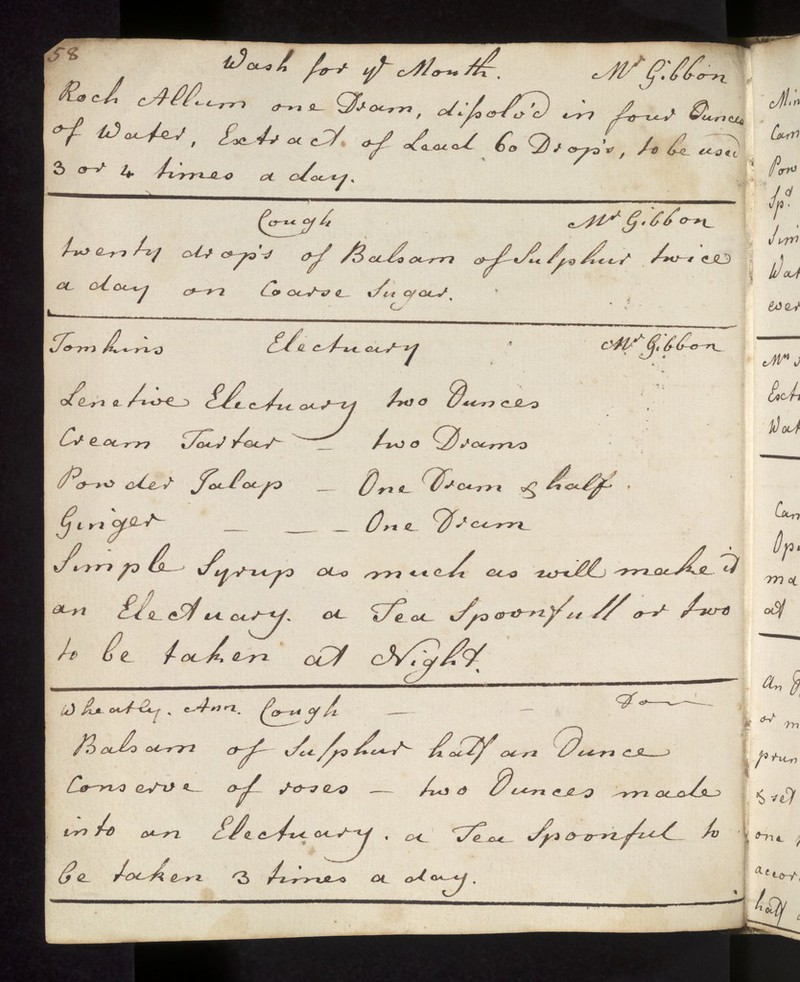 58
Wash for ye Mouth. Mr Gibbon
Roch Allum one Dram, dissolv'd in four Ounces
of Water, Extract of Lead 60 Drop's, to be used
3 or 4 times a day.
Cough Mr Gibbon
twenty drop's of Balsam of Sulphur twice
a day on Coarse Sugar.
Tomkins Electuary Mr Gibbon
Lenetive Electuary two Ounces
Cream Tartar — two Drams
Powder Jalap — One Dram & half.
Ginger — — — One Dram
Simple Syrup as much as will make it
an Electuary. a Tea Spoonfull or two
to be taken at Night.
Wheatly. Ann. Cough — — Do
Balsam of Sulphur half an Ounce
Conserve of roses — two Ounces made
into an Electuary. a Tea Spoonful to
be taken 3 times a day.
Cam
Pow
Spt
Sim
Wat
ever
Mrs
Extr
Wat
Cam
Opi
ma
at
An
or m
prun
& set
one
accor
half